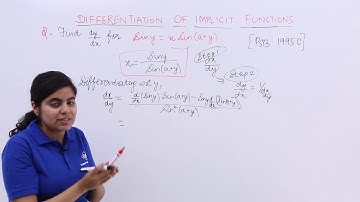 DIFFERENTIATION OF IMPLICIT FUNCTIONS
Q- Find dy/dx for Siny = x Sin(a+y) [PSB 1995C]
x = Siny/Sin(a+y)
dx/dy
Step 2
dy/dx = 1/dx/dy
Differentiating wrt y,
dx/dy = d/dx(Siny).Sin(a+y) - Siny d/dx(Sin(a+y))/Sin²(a+y)
=